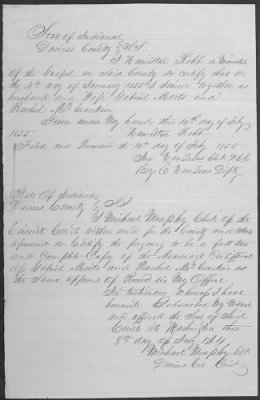 State of Indiana
Daviess County } SS
I Hamilton Robb a Minister
of the Gospel in Said County do certify that on
the 4th day of January 1855 I joined together as
husband and Wife Gabriel Moots and
Rachel McCrackin
Given under My hand this 10th day of Feby
1855 Hamilton Robb
Filed and Recorded the 10th day of Feby 1855
Jno VanTrees Clk
By E VanTrees Depty
State Of Indiana
Daviess County } SS
I Michael Murphy Clerk of the
Circuit Court within and for the County and State
aforesaid do Certify the forgoing to be a full true
and Complete Copy of the Marriage Certificate
of Gabriel Moots and Rachel McCrackin as
the Same appears of Record in My Office
In testimony Whereof I have
hereunto Subscribed My Name
and affixed the Seal of Said
Court at Washington this
8th day of July 1864
Michael Murphy Clk
Daviess Cir Court